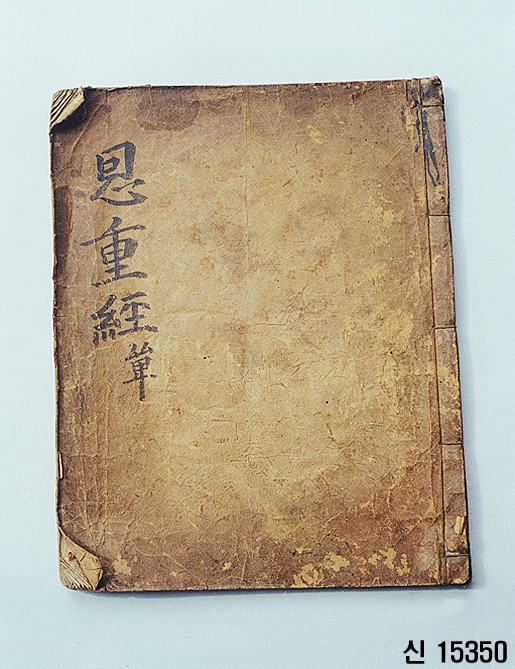 恩重經 單
신 15350